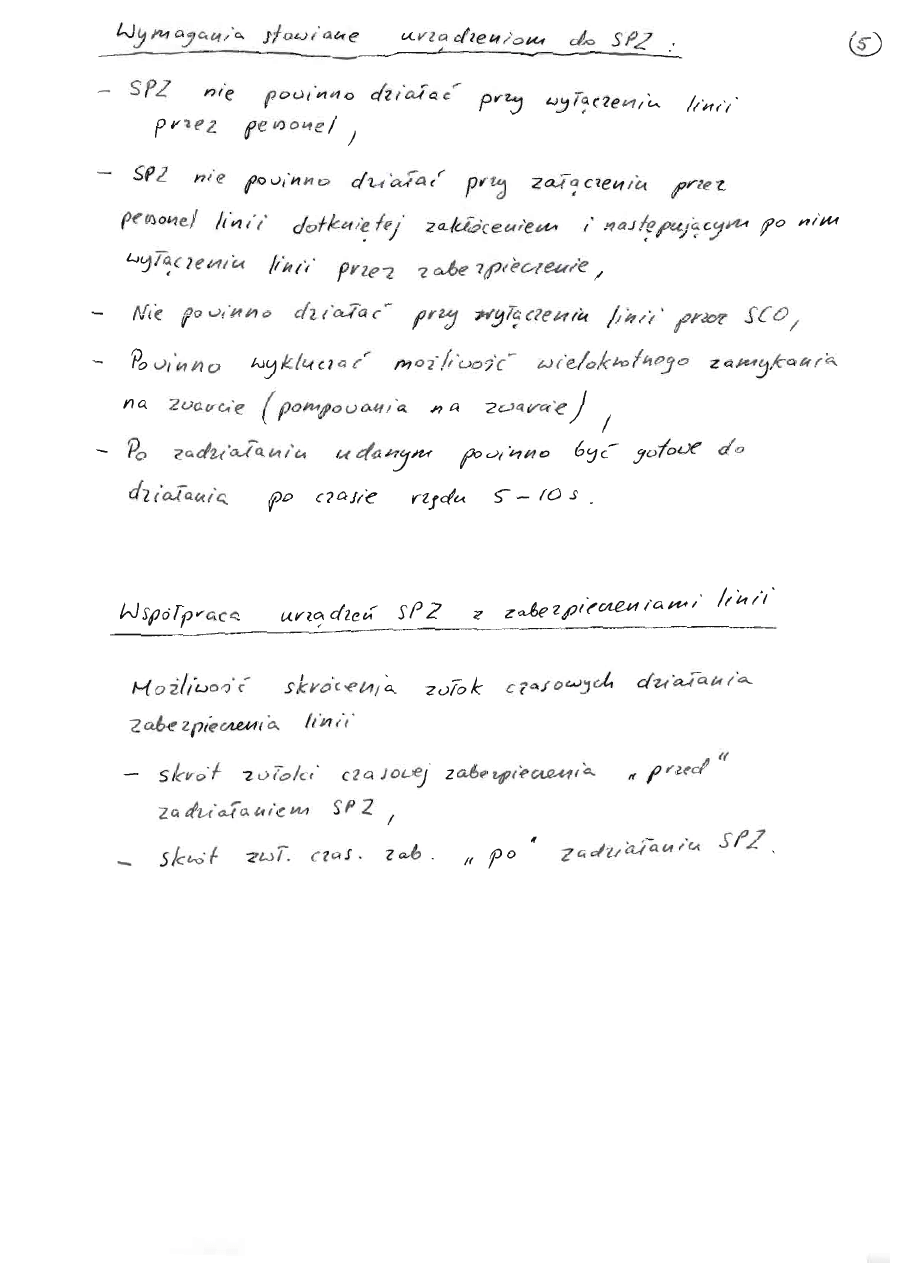 Wymagania stawiane urządzeniom do SPZ :
(5)
- SPZ nie powinno działać przy wyłączeniu linii
przez personel,
- SPZ nie powinno działać przy załączeniu przez
personel linii dotkniętej zakłóceniem i następującym po nim
wyłączeniu linii przez zabezpieczenie,
- Nie powinno działać przy wyłączeniu linii przez SCO,
- Powinno wykluczać możliwość wielokrotnego zamykania
na zwarcie (pompowania na zwarcie),
- Po zadziałaniu udanym powinno być gotowe do
działania po czasie rzędu 5-10 s.
Współpraca urządzeń SPZ z zabezpieczeniami linii
Możliwość skrócenia zwłok czasowych działania
zabezpieczenia linii
- skrót zwłoki czasowej zabezpieczenia „przed“
zadziałaniem SPZ,
- skrót zwł. czas. zab. „po“ zadziałaniu SPZ.